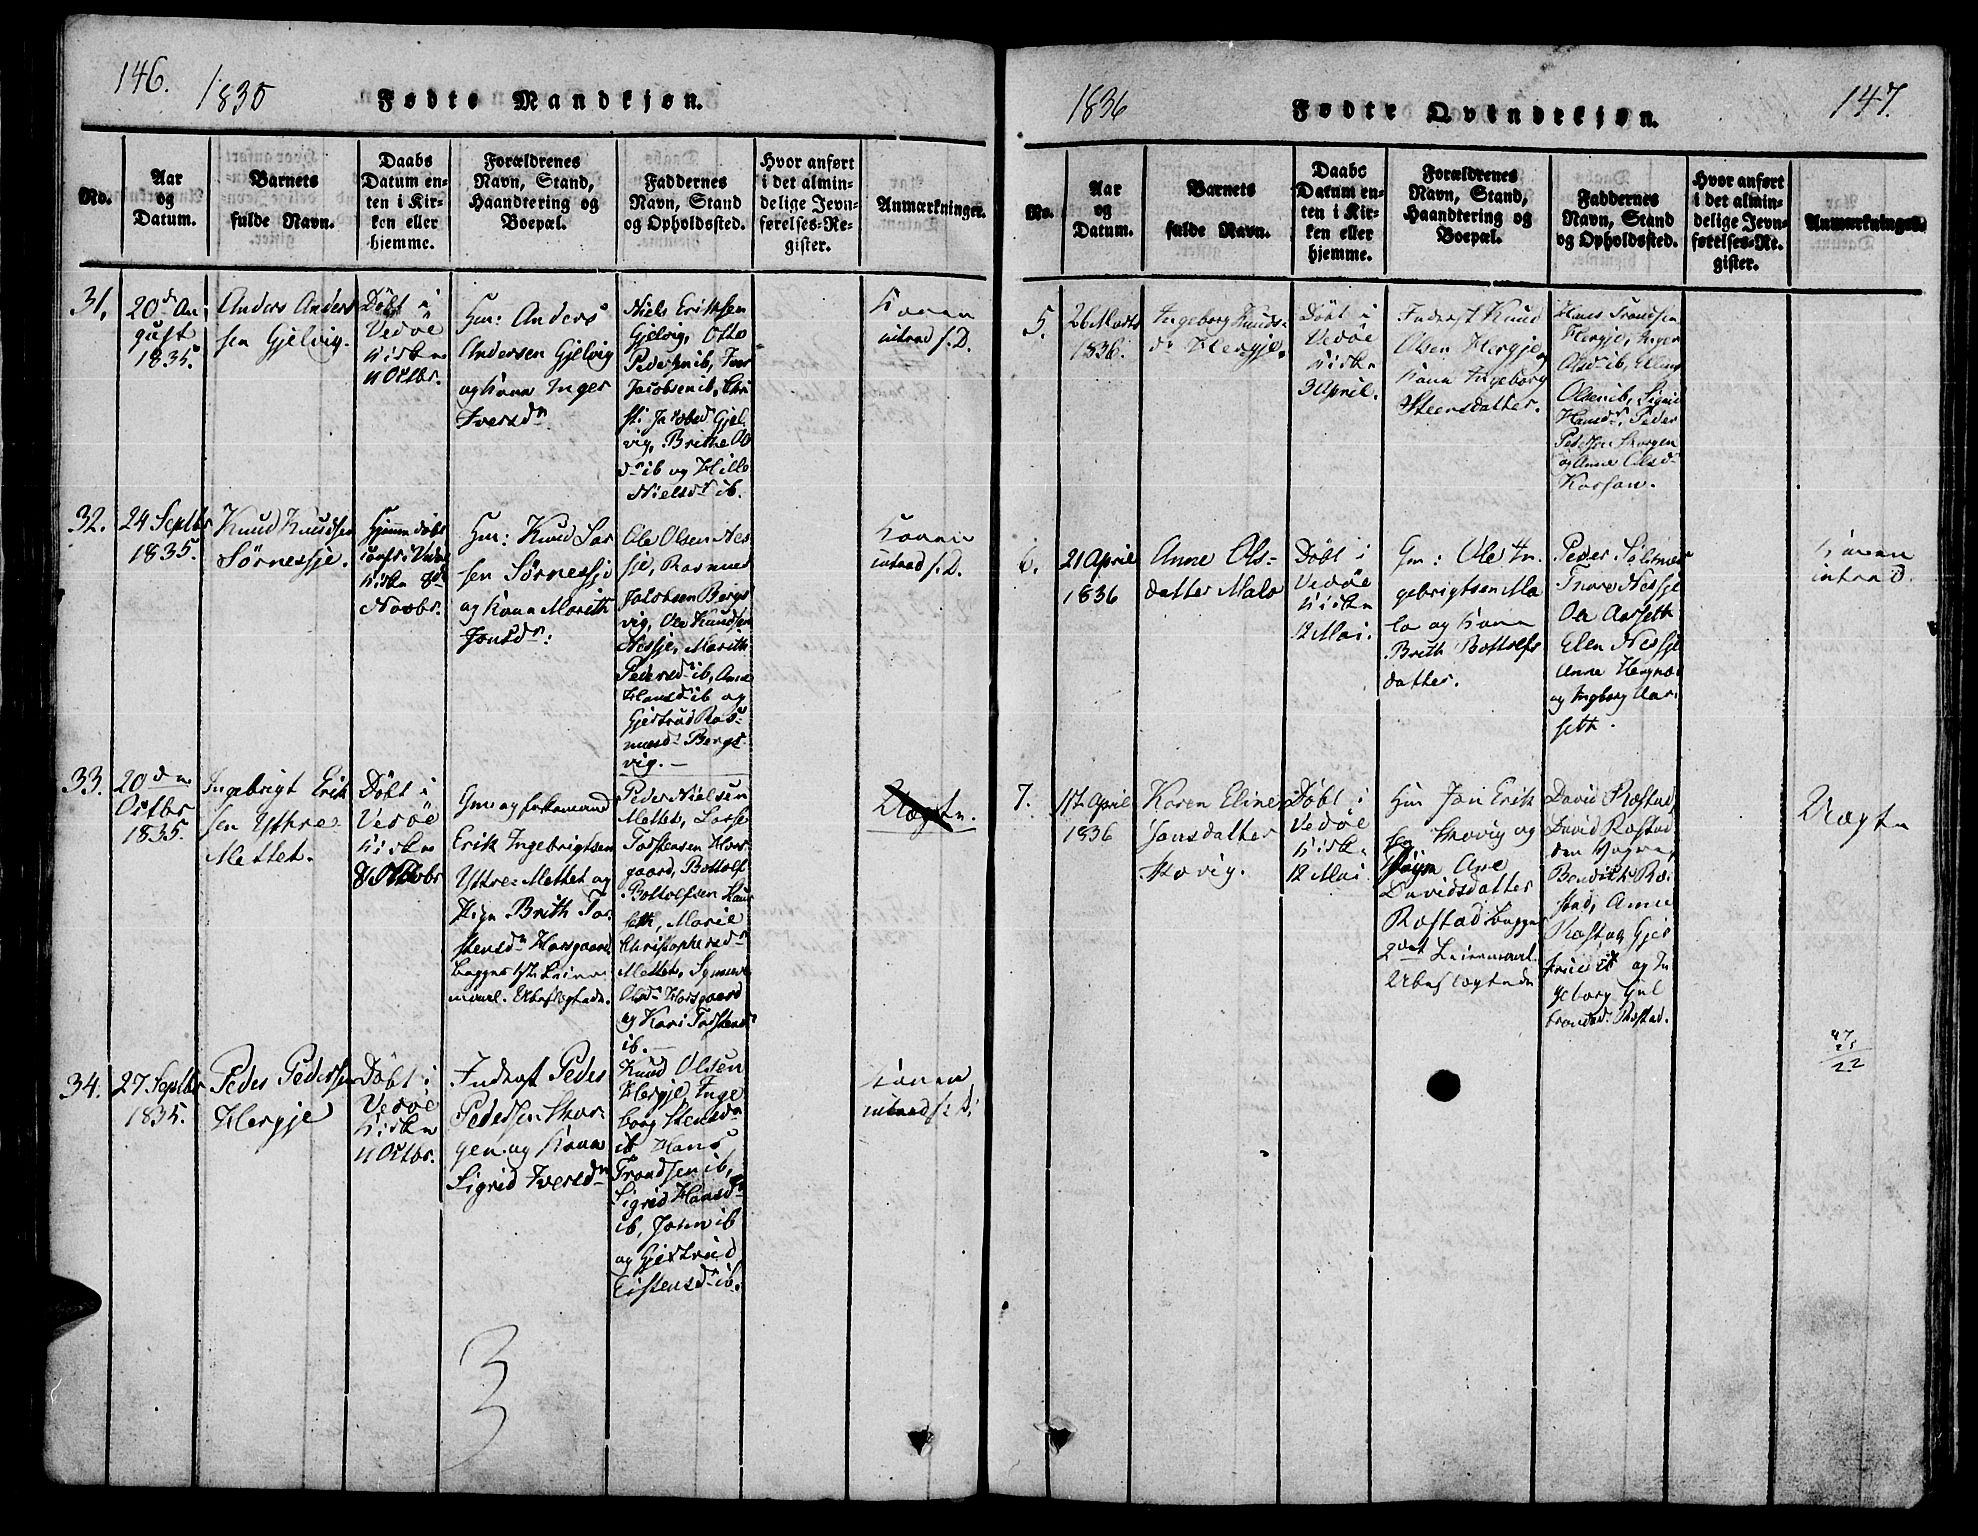 146.
1835
Fødte Mandkjøn.
No.
Aar
og
Datum.
Barnets
fulde Navn.
Daabs
Datum en-
ten i Kir-
ken eller
hjemme.
Forældrenes
Navn, Stand,
Haandtering og
Boepæl.
Faddernes
Navn, Stand
og Opholdssted.
Hvor anført
i det almin-
delige Jevn-
førelses-Re-
gister.
Anmærkninger.
31.
20de Au
gust
1835.
Anders Anders
sen Gjelvig.
Döbt i
Vedöe
Kirke
11 Octbr.
Gm: Anders
Andersen Gjelvig
og Kone Inger
Iversdr
Niels Eriksen
Gjelvig, Otto
Pedersen ib, Iver
Jacobsen ib,
Gjel
vig, Brithe
dr ib og
Nielsdr ib.
Konen
introd f. D.
32.
24 Septbr
1835.
Knud Knudsen
Sörnesje.
Hjemmedöbt
Kirke 8de
Novbr.
Gm: Knud Lar
sen Sörnesje
og Kone Marith
Jonsdr:
Ole Olsen Nes
sje, Rasmus
Jacobsen Bergs
vig, Ole Knudsen
Nessje, Marith
Pedersdr ib, Ane
Hansdr ib og
Gjertrud Ras
musdr Bergs
vig.
Konen
introd f. D.
33.
20de
Octbr
1835.
Ingebrigt Erik
sen Ythre
Mettet.
Döbt i
Vedöe
Kirke
Gm og
Erik Ingebrigtsen
Ythre Mettet og
Pige Brith Tor
stensdr Horsgaard
begges 1ste Leier
maal.
Peder Nielsen
Mettet, Lars
Torstensen Hors
gaard, Bottolf
Bottolfsen
seth, Marie
Christophersdr
Mettet,
Olsdr Horsgaard
og Kari Torstensdr
ib.
34.
27 Septbr
1835.
Peder Pedersen
Hergje
Döbt i
Vedöe
Kirke
11 Octbr.
Inderst Peder
Pedersen Skor
gen og Kone
Sigrid Iversdr
Knud Olsen
Hergje, Inge
borg Steensdr
ib, Hans
Trondsen ib,
Sigrid Hansdr
ib, John ib
og Gjertrud
ib.
Konen
introd f. D.
3
1836
Fødte Qvindekjøn.
147.
No.
Aar
og
Datum.
Barnets
fulde Navn.
Daabs
Datum en-
ten i Kir-
ken eller
hjemme.
Forældrenes
Navn, Stand,
Haandtering og
Boepæl.
Faddernes
Navn, Stand
og Opholdssted.
Hvor anført
i det almin-
delige Jevn-
førelses-Re-
gister.
Anmærkninger.
5.
26 Marts
1836.
Ingeborg Knuds-
dr Hergje.
Döbt i
Vedöe
Kirke
3 April.
Inderst Knud
Olsen Hergje
Kone Ingeborg
Steensdatter.
Hans Trondsen
Hergje, Inger
Olsdr ib,
Olsen ib, Sigrid
Hansdr, Peder
Pedersen Skorgen
og Anne Olsdr
6.
21 April
1836
Anne Ols-
datter Malo
Döbt i
Vedöe
Kirke
12 Mai.
Gm: Ole In
gebrigtsen Ma
lo og Kone
Brith Bottolfs
datter.
Peder
Nessje
Ole Aarseth
Elen Nessje
Anne
og Ingborg Aar
seth.
Konen
introd.
7.
17de April
1836
Karen Eline
Jonsdatter
Skovig.
Döbt i
Vedöe
Kirke
12 Mai.
Gm Jon Erik
sen Skovig og
Pigen Ane
Davidsdatter
Røstad begges
2det Leiermaal.
David Røstad,
David Røstad
den Yngre,
Bendik Rø
stad, Anne
Røstad, Gjer
trud og In
geborg Gul
brandsdr Røstad.
47
25
22